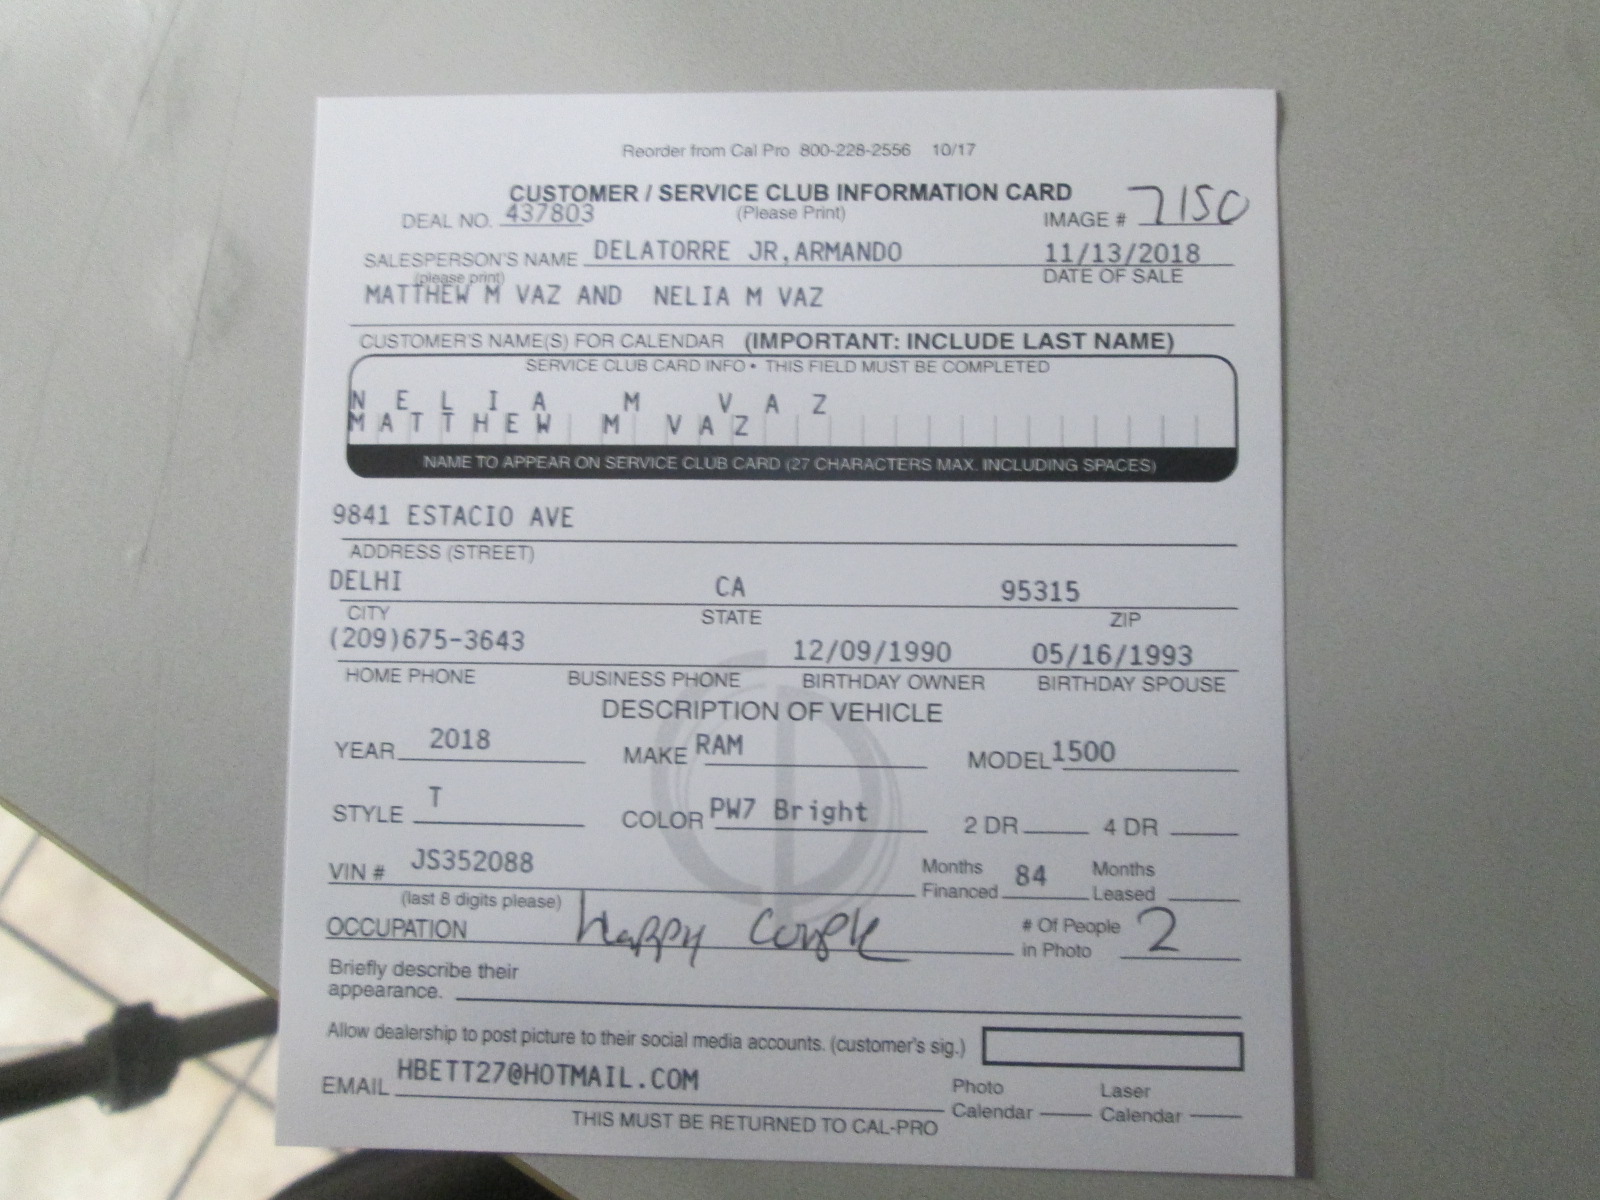 Reorder from Cal Pro 800-228-2556 10/17
CUSTOMER / SERVICE CLUB INFORMATION CARD
DEAL NO. 437803 (Please Print) IMAGE # 7150
SALESPERSON'S NAME DELATORRE JR,ARMANDO 11/13/2018
(please print) DATE OF SALE
MATTHEW M VAZ AND NELIA M VAZ
CUSTOMER'S NAME(S) FOR CALENDAR (IMPORTANT: INCLUDE LAST NAME)
SERVICE CLUB CARD INFO • THIS FIELD MUST BE COMPLETED
NELIA M VAZ
MATTHEW M VAZ
NAME TO APPEAR ON SERVICE CLUB CARD (27 CHARACTERS MAX. INCLUDING SPACES)
9841 ESTACIO AVE
ADDRESS (STREET)
DELHI CA 95315
CITY STATE ZIP
(209)675-3643 12/09/1990 05/16/1993
HOME PHONE BUSINESS PHONE BIRTHDAY OWNER BIRTHDAY SPOUSE
DESCRIPTION OF VEHICLE
YEAR 2018 MAKE RAM MODEL 1500
STYLE T COLOR PW7 Bright 2 DR 4 DR
VIN # JS352088 Months Financed 84 Months Leased
(last 8 digits please)
OCCUPATION Happy Couple # Of People in Photo 2
Briefly describe their
appearance.
Allow dealership to post picture to their social media accounts. (customer's sig.)
EMAIL HBETT27@HOTMAIL.COM Photo Calendar Laser Calendar
THIS MUST BE RETURNED TO CAL-PRO